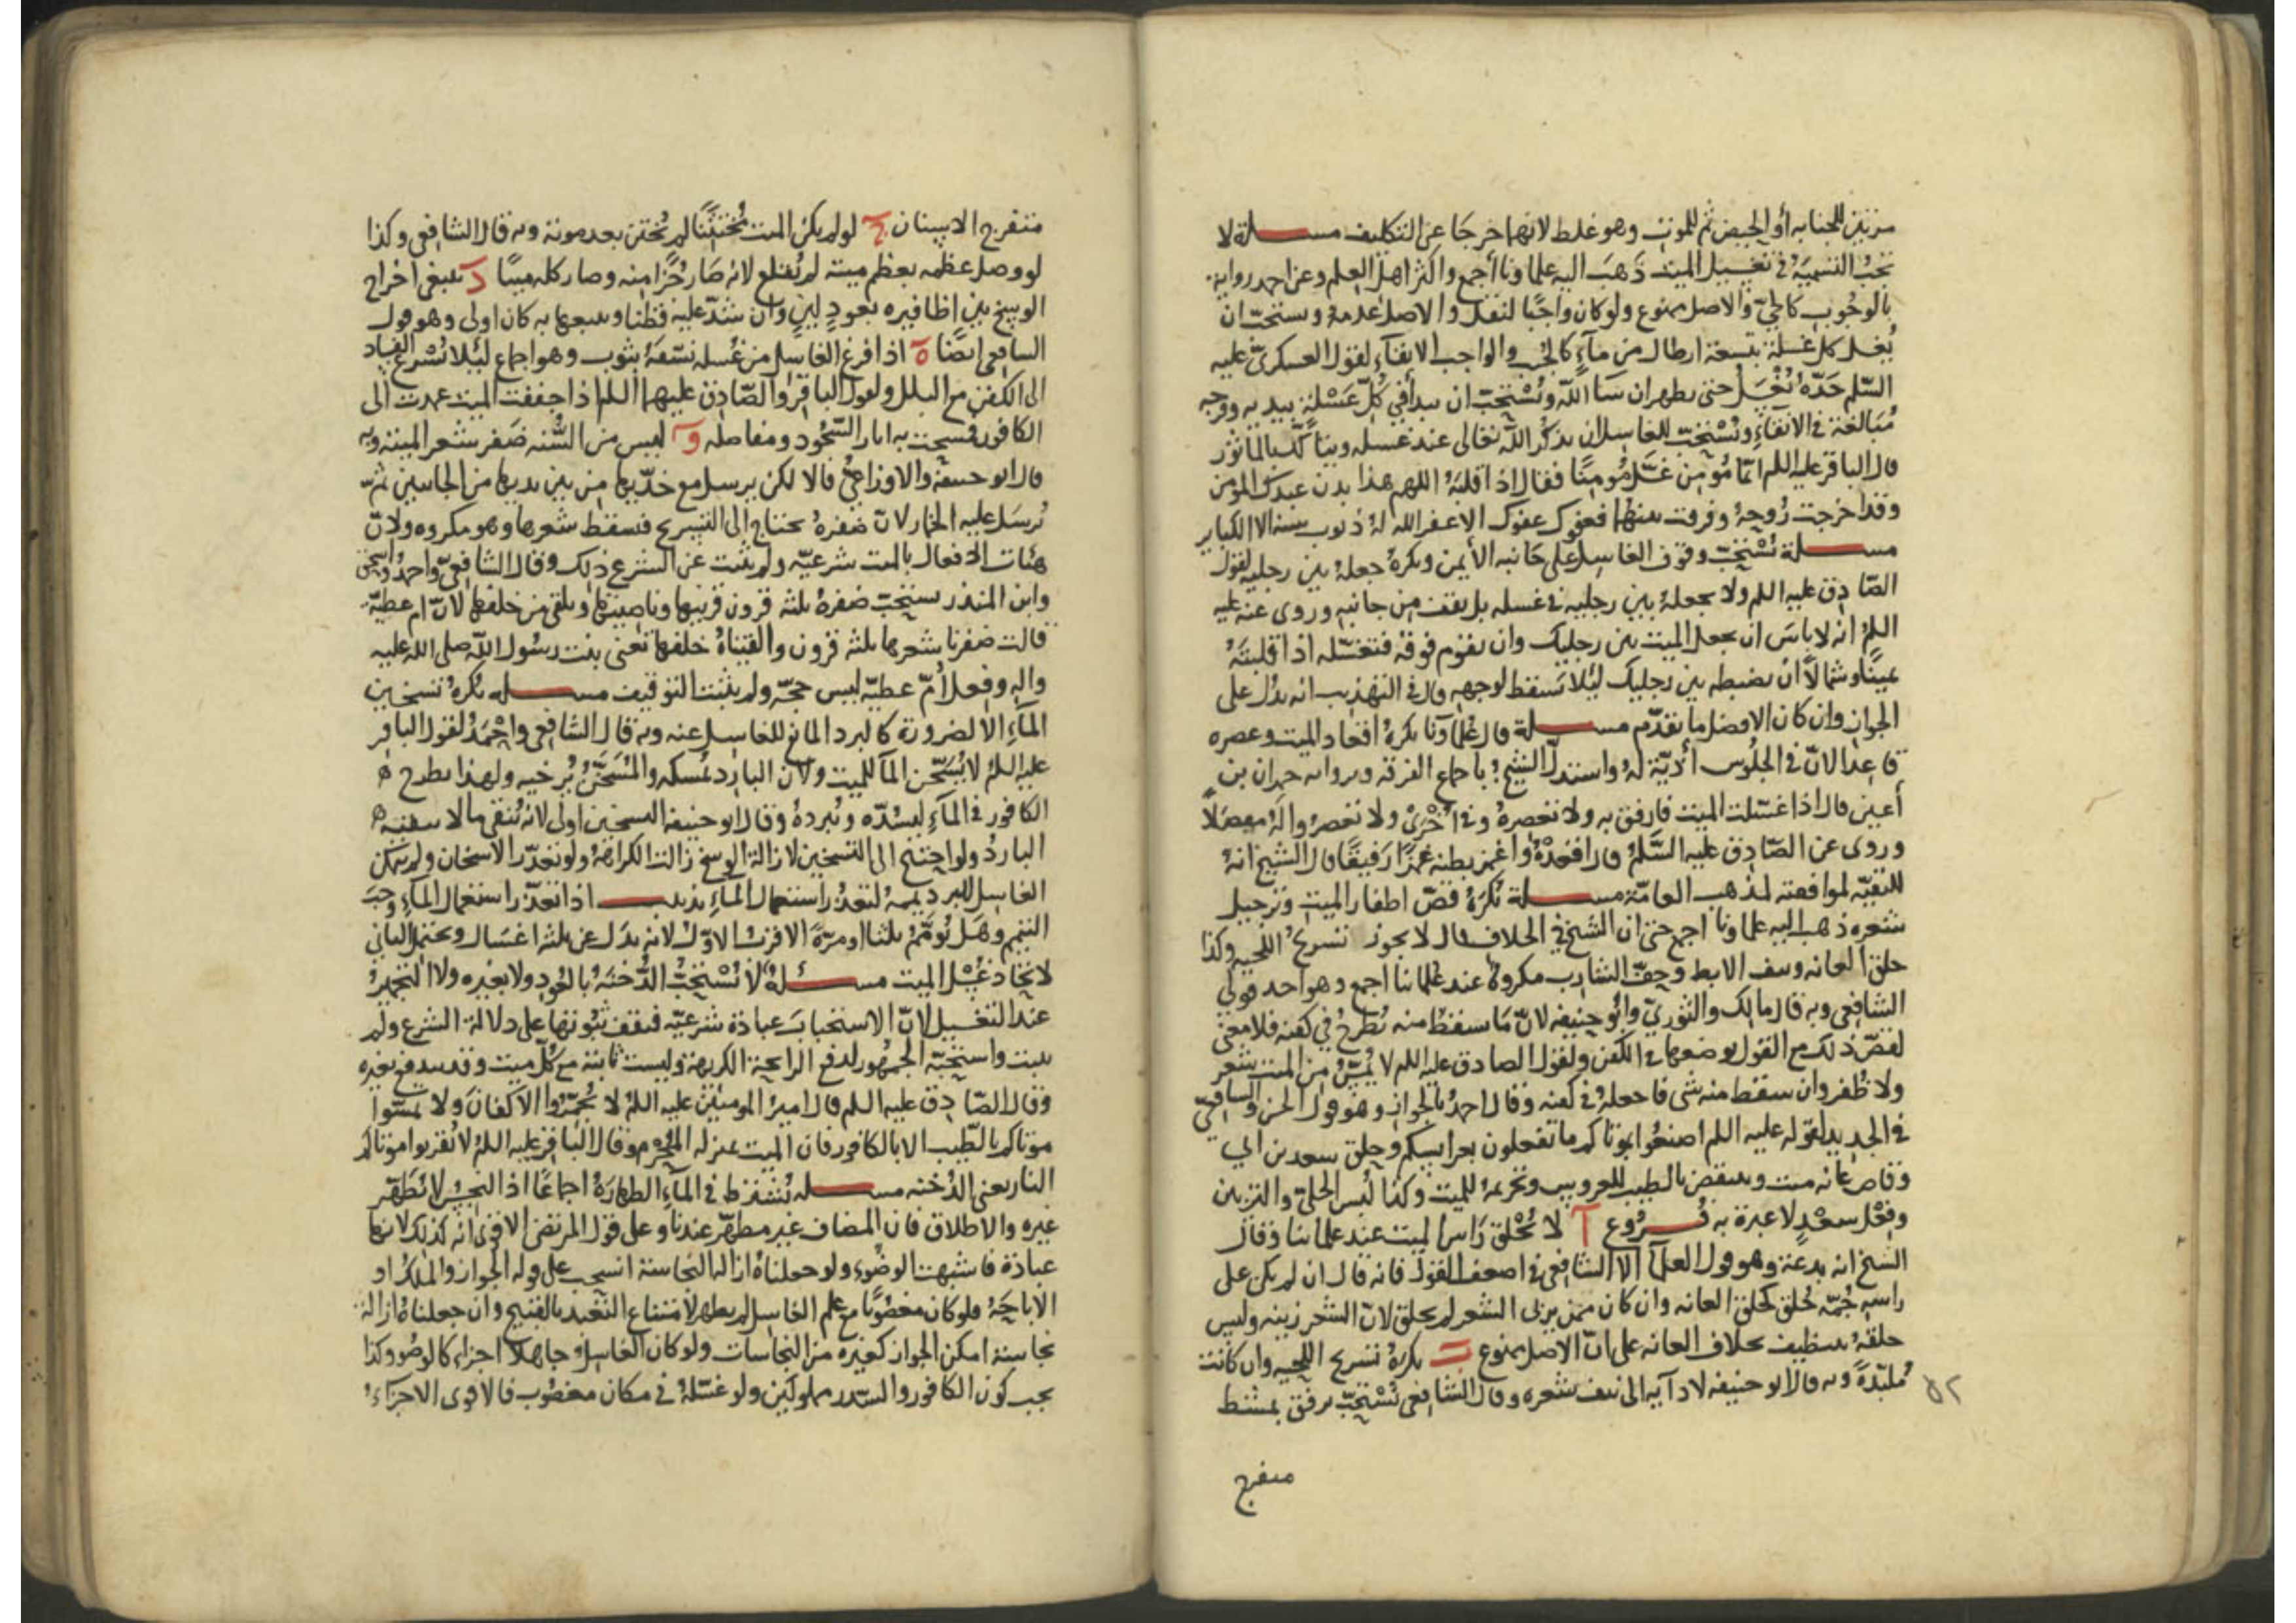 مرتين للجنابة أو الحيض ثم للموت وهو غلط لانهما خرجا عن التكليف مسئلة لا
تجب التسمية في تغسيل الميت ذهب اليه علماونا أجمع واكثر اهل العلم وعن احمد رواية
بالوجوب كالحي والاصل ممنوع ولو كان واجبًا لنقل والاصل عدمه ويستحب ان
يُغسل كل غسلة بتسعة ارطال من ماءٍ كالجنب والواجب الانقاء لقول العسكري عليه
السّلم حَدّه يُغْسَلُ حتى يطهر ان شا اللّه ويُسْتحبّ ان يبدأ في كلّ غَسْلةٍ بيديه وفرجه
مُبَالغة في الانقاءِ ويُسْتحبّ للغاسل ان يذكُر اللّه تعالى عند غسله ويتأكّد بالمأثور
قال الباقر عليه اللم ايّما مُؤمن غسَّل مُومنًا فقال اذا قلبَهُ اللهم هذا بدن عبدك المؤمن
وقد اخرجت رُوحهُ وفرقت بينهما فعفوك عفوك الا غفر الله لهُ ذنوب سنة الا الكباير
مسئلة يُسْتحبّ وقوف الغاسل على جَانبه الأيمن ويكرهُ جعلهُ بين رجليه لقول
الصّادق عليه اللم ولا يجعلهُ بين رجليه في غسله بل يقف من جانبهِ وروى عنه عليه
اللم انه لا باسَ ان يجعل الميت بين رجليك وان يقوم فوقه فتغسّله اذا قلبتَهُ
يمينًا وشمالًا ان يضبطه بين رجليك لئلا يَسقط لوجههِ قال في التهذيب انه يدُل على
الجوازِ وان كان الافضل ما تقدّم مسئلة قال علماونا يكرهُ اقعاد الميت وعصره
قاعدا لانّ في الجلُوس أذيّة لهُ واستدلّ الشيخ باجماع الفرقه وبرواية حمران بن
أعين قال اذا غسّلت الميت فارفق به ولا تعصرهُ وفي اُخْرَىٰ ولا تغمزوا لهُ مفصَلًا
وروى عن الصّادِق عليه السَّلمُ قال اقعدْهُ واغمز بطنه غمزًا رَفيقًا قال الشيخ انهُ
للتقيّه لموافقته لمذهب العامّة مسئلة يُكرَهُ قصّ اطفار الميتِ وترجيل
شعره ذهب اليه علماونا اجمع حتى ان الشيخ في الخلاف قال لا يجوز تسريحُ اللحيه وكذا
حلق العانه ونتف الابط وحفّ الشارب مكروهٌ عند علمائنا اجمع وهو احد قولي
الشافعي وبه قال مالك والثوريّ وابُو حنيفه لانّ مَا سقط منه يُطرحُ في كفنه فلا معنى
لقصّ ذلك مع القول بوضعها في الكفن ولقول الصادق عليه اللم لا يُمسُّ من الميت شعر
ولا ظُفر وان سقط منه شى فاجعلهُ في كفنه وقال احمدُ بالجوازِ وهو قول الحسن والشافعيّ
في الجديد لقوله عليه اللم اصنعُوا بموتاكم ما تفعلون بعرايسكم وحلق سعد بن ابي
وقاص عانه ميت وينتقض بالطيب للعروس وتحريمهُ للميت وكذا لُبسُ الحليّ والتزيين
وفِعْل سعْدٍ لا عبرة به فروع آ لا يُحْلق رَاس الميت عند علمائنا وقال
الشيخ انه بدعة وهو قول العلمآ الا الشافعي في اضعف القول فانه قال ان لم يكن على
راسه جُمّه حُلق كحلق العانه وان كان ممّن يربى الشعر لم يحلق لانّ الشعر زينه وليس
حلقهُ بتنظيف بخلاف العانه على انّ الاصل ممنوع ب يكرهُ تسريح اللحيه وان كانت
مُلبّدةً وبه قال ابو حنيفه لادآيه الى نتف شعره وقال الشافعي يُسْتحبّ برفق بمشط
٥٢
منفرج
منفرج الاسنان ج لو لم يكن الميت مُختتنًا لم يُختن بعد موته وبه قال الشافعي وكذا
لو وصل عظمه بعظم ميتة لم يُقلع لانه صَار جُزًا منه وصار كله ميتًا د ينبغي اخراج
الوسخ بين اظافيره بعودٍ لينٍ وان شدّ عليه قطنا ويتبعها به كان اولى وهو قول
الشافعي ايضًا ه اذا فرغ الغاسل من غُسله نشّفهُ بثوب وهو اجماع لئلا يُسْرع الفساد
الى الكفن مع البلل ولقول الباقر والصّادق عليهما اللم اذا جففت الميت عمدت الى
الكافور فمسحت به اثار السّجُود ومفاصله و ليس من السُّنه ضفر شعر الميتة وبه
قال ابو حنيفة والاوزاعيّ قالا لكن يرسل مع خدّيها من بين يديها من الجانبين ثمّ
يُرسَل عليه الخمار لانّ ضفرهُ يحتاج الى التسريح فيسقط شعرها وهو مكروه ولانّ
هيئات الافعال بالميت شرعيّه ولم يثبت عن الشرع ذلك وقال الشافعيّ واحمدُ واسحق
وابن المنذر يستحبّ ضفرهُ ثلثه قرون قرنيها وناصيتها ويلقى من خلفها لانّ ام عطيّة
قالت ضفرنا شعرها ثلثه قرون والقيناهُ خلفها تعنى بنت رسُول اللّه صلى الله عليه
واله وفعل اُمّ عطيّه ليس حجّه ولم يثبت التوقيف مسئلة يُكرهُ تسخين
المآءِ الا لضرورة كالبرد المانع للغاسل عنه وبه قال الشافعي واحْمَدُ لقول الباقر
عليه اللمُ لا يُسَخّن المآ للميت ولان البارد يُمسكه والمُسَخّنُ يُرخيه ولهذا يطرح
الكافور في المآءِ ليشدّه ويُبردهُ وقال ابو حنيفة التسخين اولى لانهُ يُنقي ما لا ينقيه
الباردُ ولو احتيج الى التسخين لازالة الوسخ زالت الكراهةُ ولو تعذّر الاسخان ولم يتمكن
الغاسل للبرد يممهُ لتعذّر استعمال المآءِ تذنيب اذا تعذّر استعمال المآءِ وجبَ
التيمم وهَل يُومّمُ ثلثا او مرّةً الاقرب الاوّل لانه بدَل عن ثلثة اغسَال ويحتمل الثاني
لاتّحاد غُسْل الميت مسئلةُ لا يُسْتحبُّ الدُّخنَةُ بالعُودِ ولا بغيره ولا التجميرُ
عند التغسيل لانّ الاستحبابَ عبادة شرعيّه فيقف ثبُوتها على دلالة الشرع ولم
يثبت واستحبّه الجمهُور لدفع الرايحة الكريهة وليست ثابتة مع كلّ ميت وقد يندفع بغيره
وقال الصّادق عليه اللم قال اميرُ المومنين عليه اللمُ لا تُجمّرُوا الاكفانَ ولا تمسّوا
موتاكم بالطّيب الا بالكافور فان الميت بمنزله المُحْرِم وقال الباقر عليه اللمُ لا تُقربوا موتاكم
النار يعني الدُخنه مسئلة يُشترط في المآءِ الطهارَةُ اجماعًا اذ النجِسُ لا يُطَهِّر
غيره والاطلاق فان المضاف غير مطهّر عندنا وعلى قول المرتضى الاقوى انه كذلك لانها
عبادة فاشبهت الوضُوء ولو جعلناهُ ازاله النجاسة انسحب على قوله الجواز والملك او
الاباحَةُ فلو كان مغصُوبًا مع علم الغاسل لم يطهر لامتناع التعبد بالقبيح وان جعلناهُ ازالة
نجاسة امكن الجواز كغيره من النجاسات ولو كان الغاسل جاهلًا اجزاء كالوضُو وكذا
يجب كون الكافور والسّدر مملوكين ولو غسّلهُ في مكان مغصُوب فالاقوى الاجزآءُ